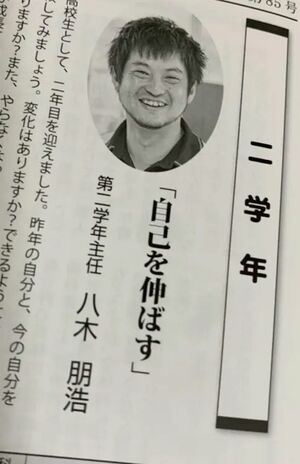 85号
二学年
「自己を伸ばす」
第二学年主任 八木 朋浩
高校生として、二年目を迎えました。昨年の自分と、今の自分を
してみましょう。変化はありますか？できるように
りますか？また、やらな
成長
科